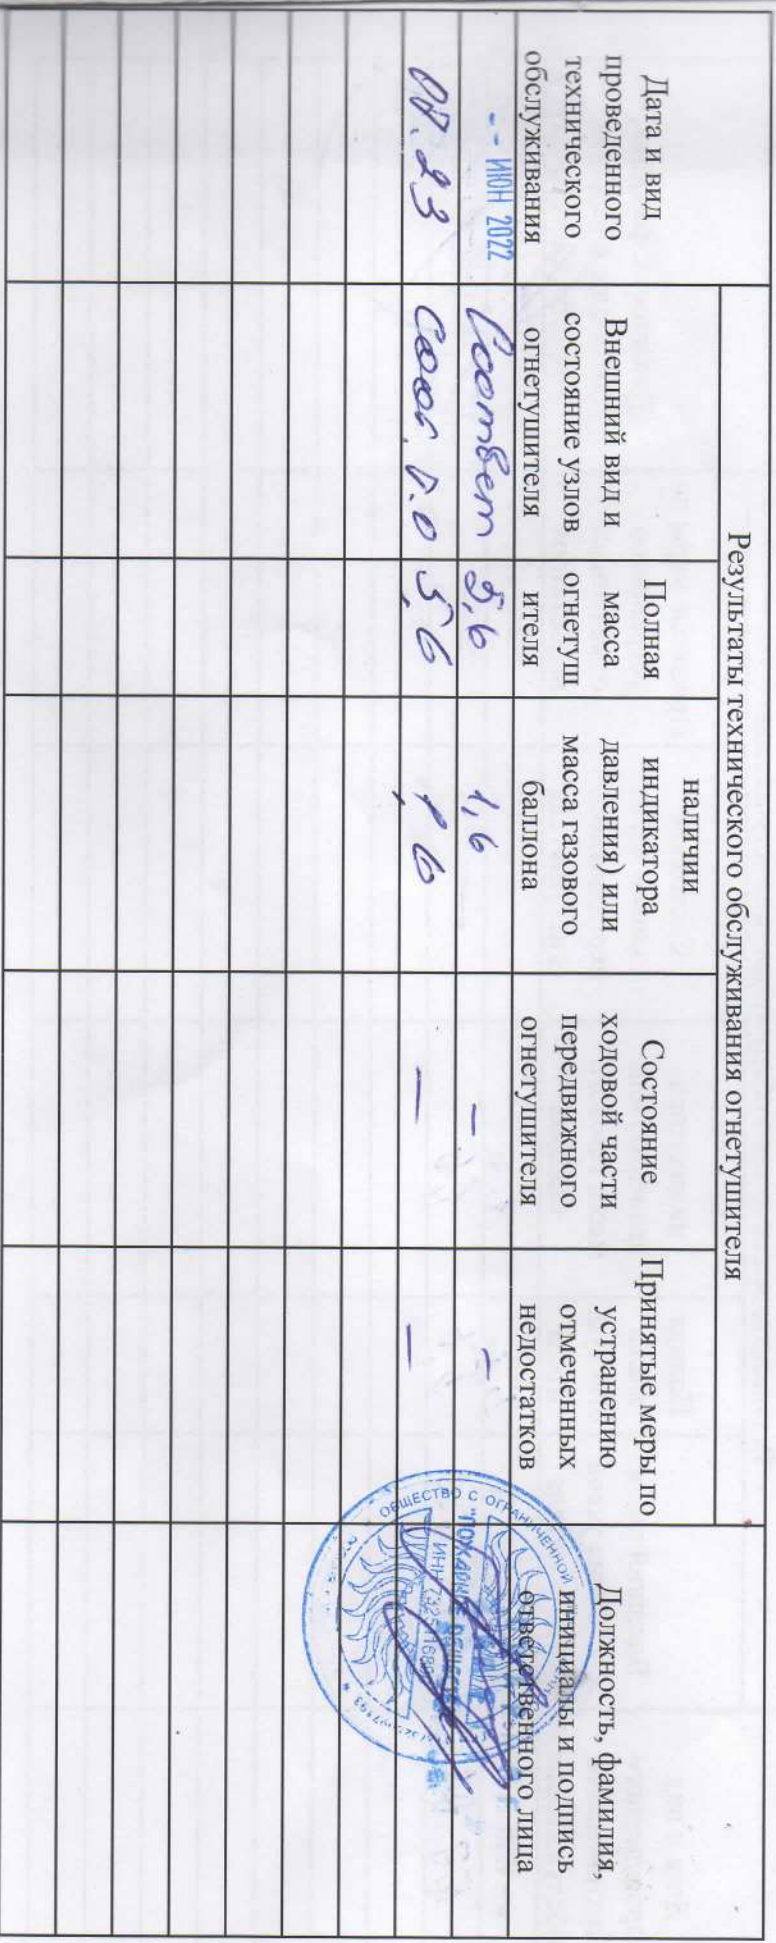 Результаты технического обслуживания огнетушителя
Дата и вид
проведенного
технического
обслуживания
Внешний вид и
состояние узлов
огнетушителя
Полная
масса
огнетуш
ителя
наличии
индикатора
давления) или
масса газового
баллона
Состояние
ходовой части
передвижного
огнетушителя
Принятые меры по
устранению
отмеченных
недостатков
Должность, фамилия,
инициалы и подпись
ответственного лица
-- ИЮН 2022
Соответ
5,6
1,6
-
-
08.23
5,6
1,6
—
—
ОБЩЕСТВО С ОГРАНИЧЕННОЙ
ИНН